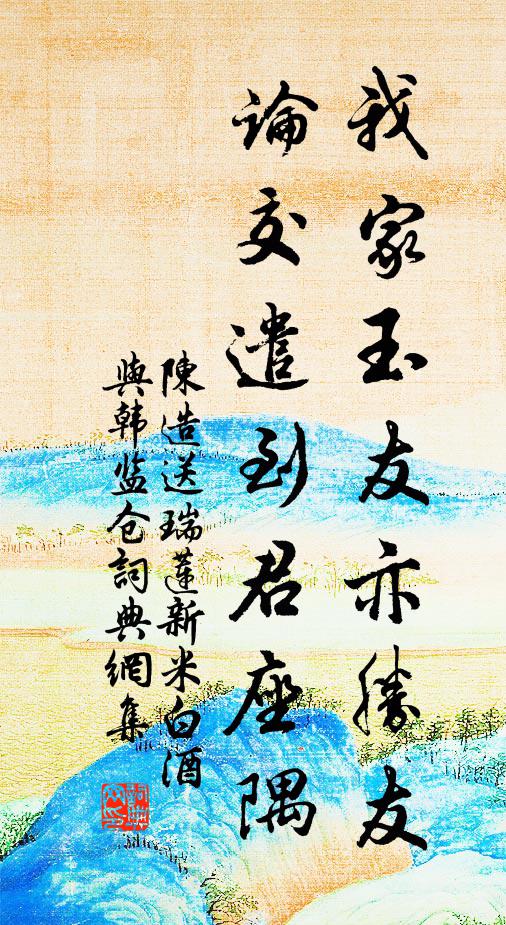 我家玉友亦勝友
論交遣到君座隅
陳造送瑞蓮新米白酒
與韩监仓詞典網集